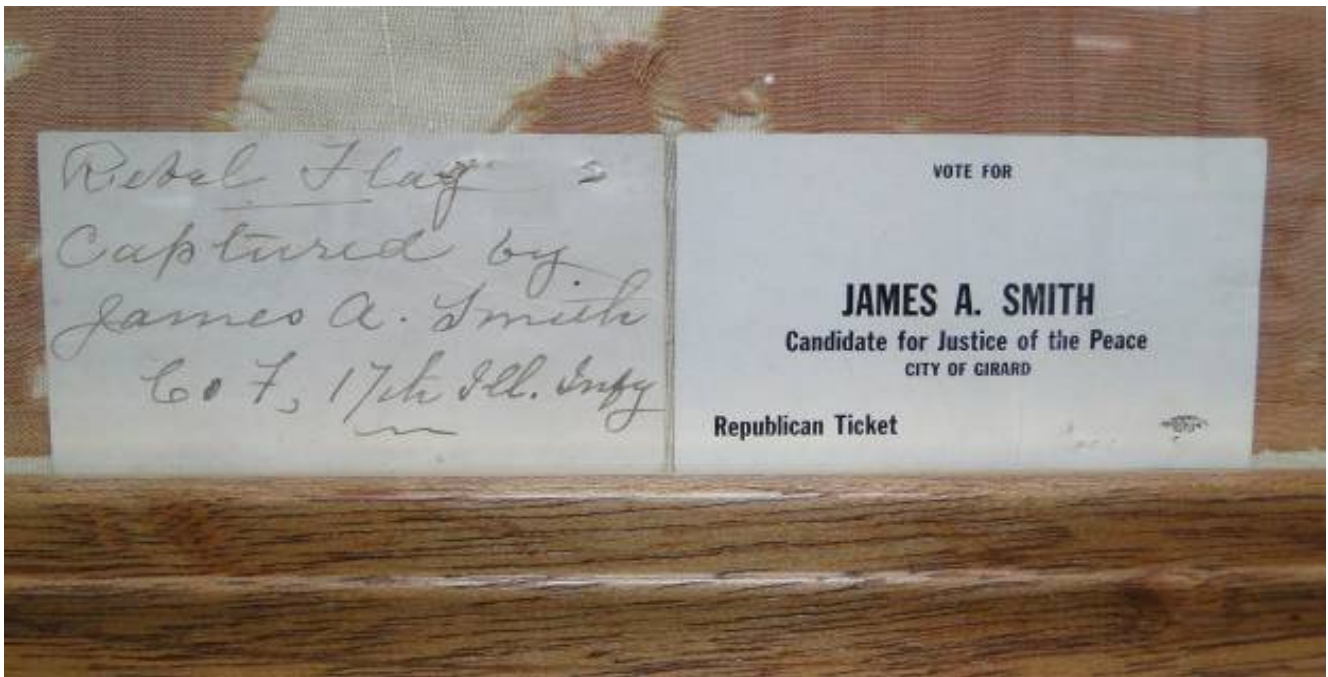 Rebel Flag
Captured by
James A. Smith
Co F, 17th Ill. Infy
VOTE FOR
JAMES A. SMITH
Candidate for Justice of the Peace
CITY OF GIRARD
Republican Ticket